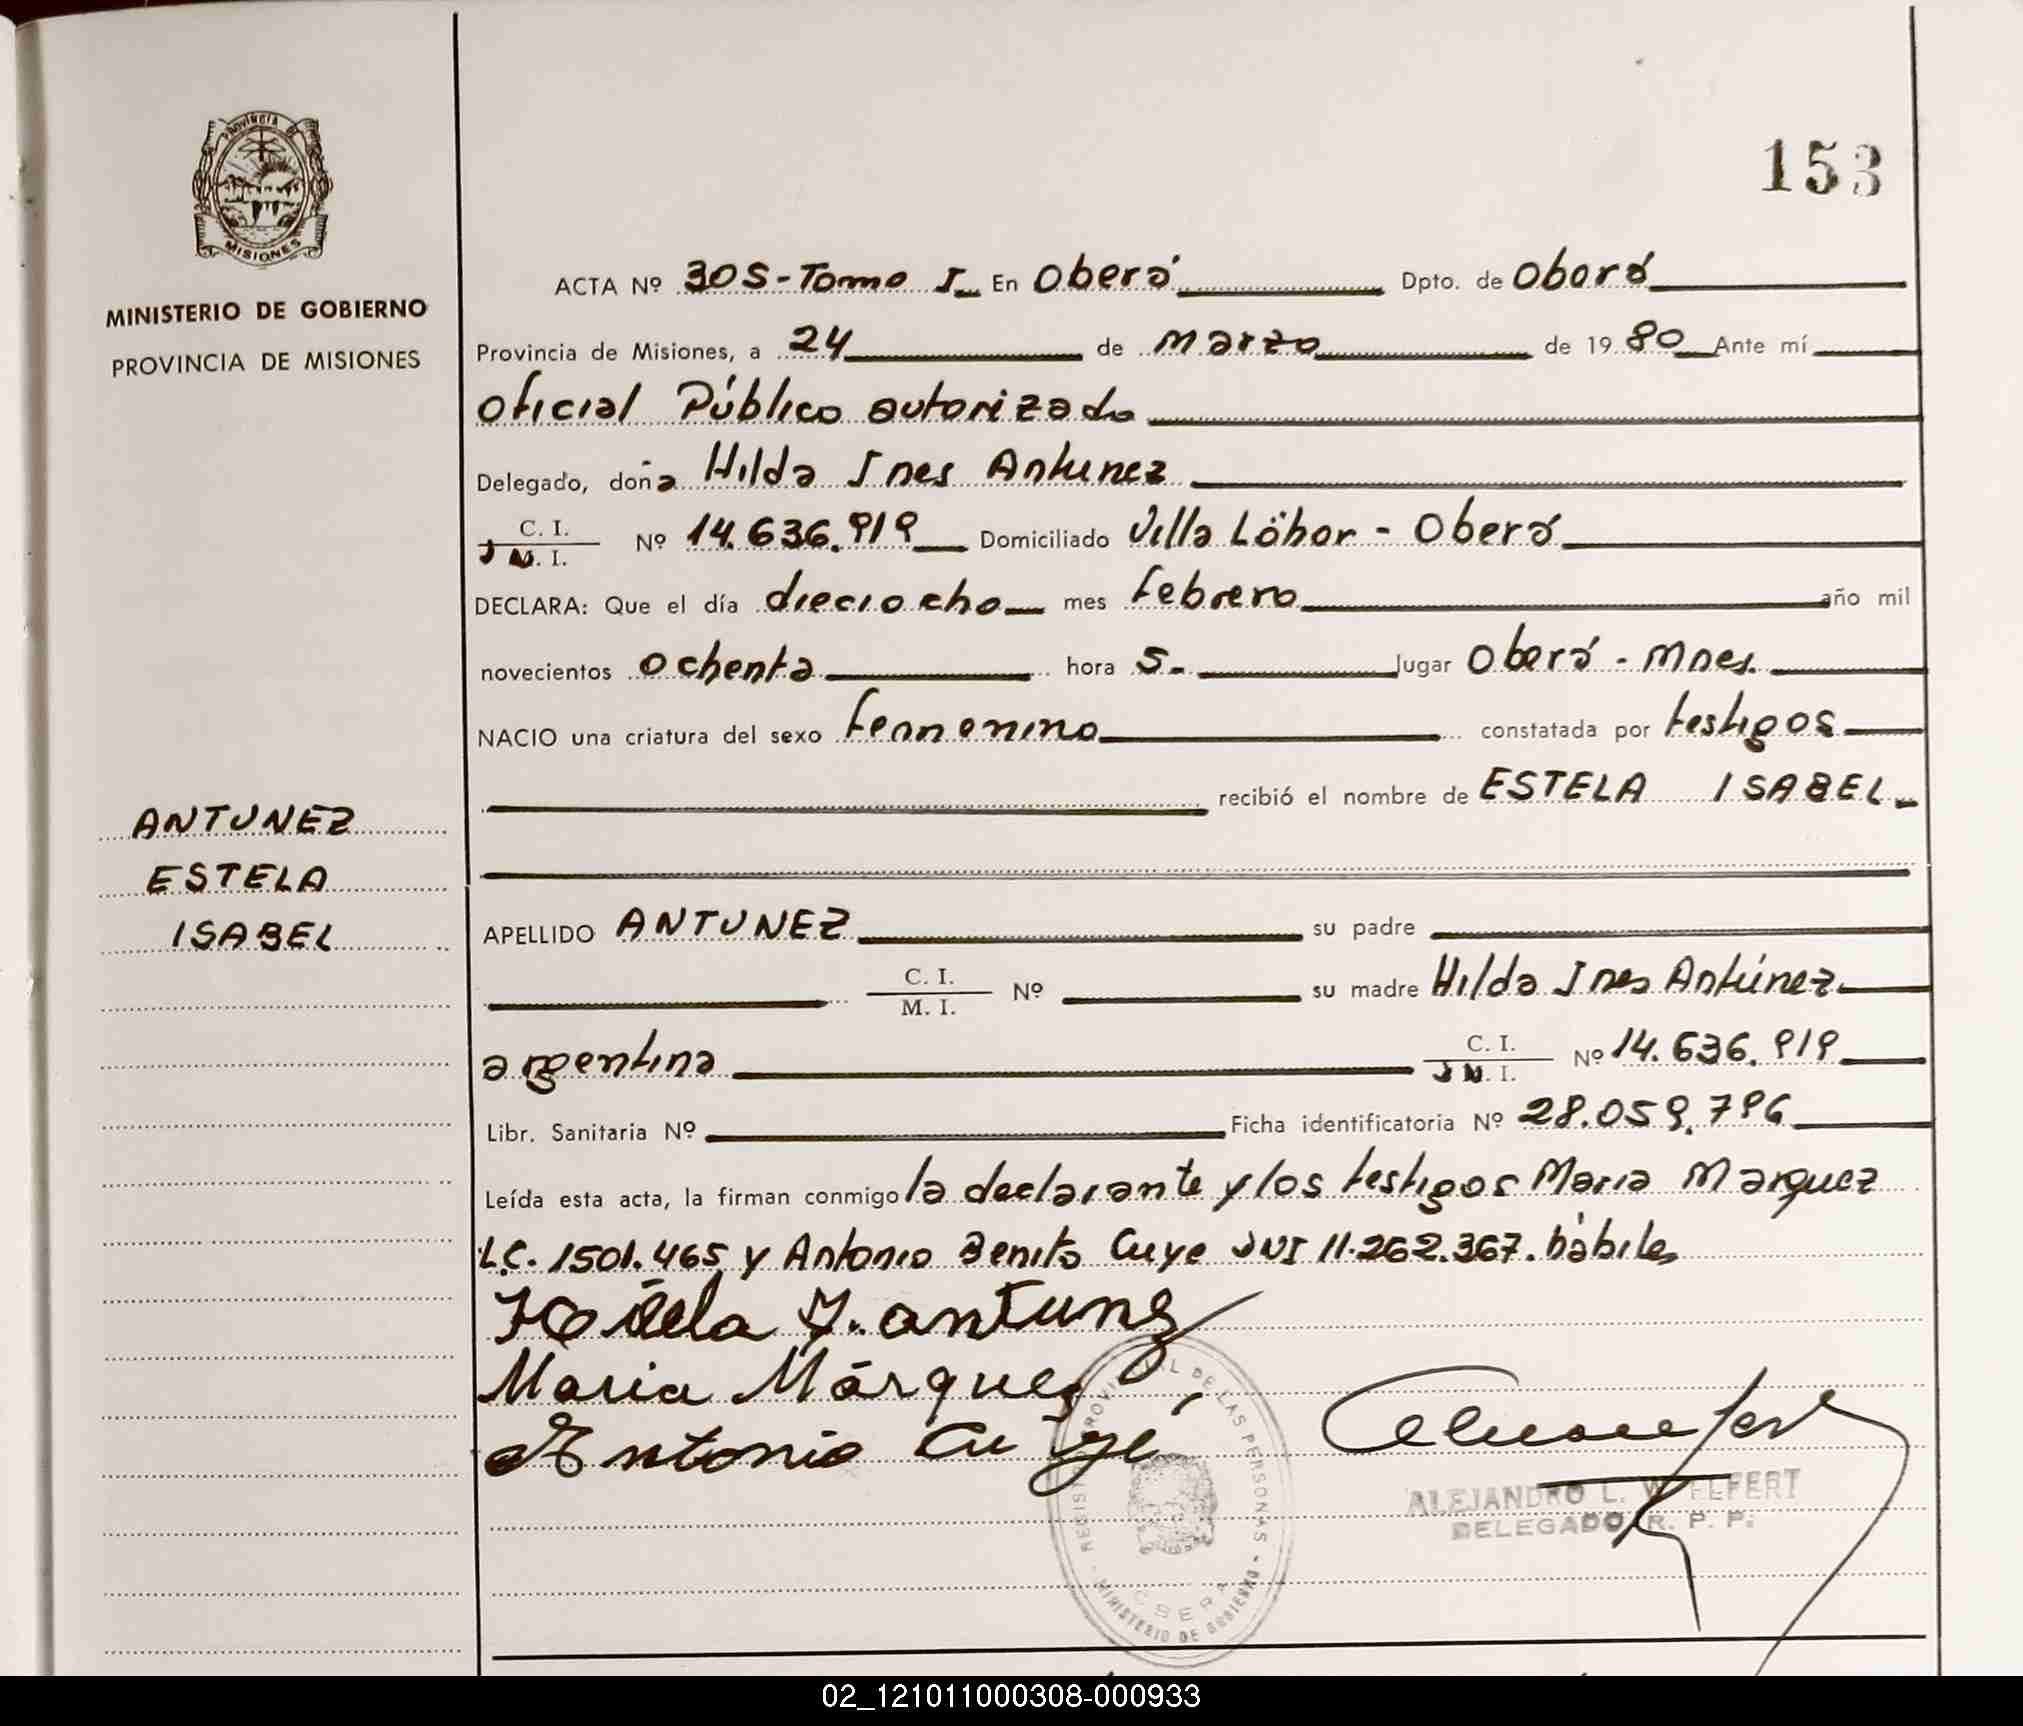 153
PROVINCIA DE
MISIONES
MINISTERIO DE GOBIERNO
PROVINCIA DE MISIONES
ANTUNEZ
ESTELA
ISABEL
ACTA Nº 305-Tomo I En Oberá Dpto. de Oberá
Provincia de Misiones, a 24 de marzo de 1980 Ante mí
Oficial Público autorizado
Delegado, doña Hilda Ines Antunez
C. I.
D N. I. Nº 14.636.919 Domiciliado Villa Löhor - Oberá
DECLARA: Que el día dieciocho mes febrero año mil
novecientos ochenta hora 5.- lugar Oberá - Mnes.
NACIO una criatura del sexo femenino constatada por testigos
recibió el nombre de ESTELA ISABEL
APELLIDO ANTUNEZ su padre
C. I.
M. I. Nº su madre Hilda Ines Antúnez
argentina C. I.
D N. I. Nº 14.636.919
Libr. Sanitaria Nº Ficha identificatoria Nº 28.059.796
Leída esta acta, la firman conmigo la declarante y los testigos Maria Marquez
L.C. 1501.465 y Antonio Benito Cuye DNI 11.262.367. hábiles
antunez
Maria Márquez
Antonio Cuyé
REGISTRO PROVINCIAL DE LAS PERSONAS
MINISTERIO DE GOBIERNO
ALEJANDRO L. W
DELEGADO R. P. P.
02_121011000308-000933